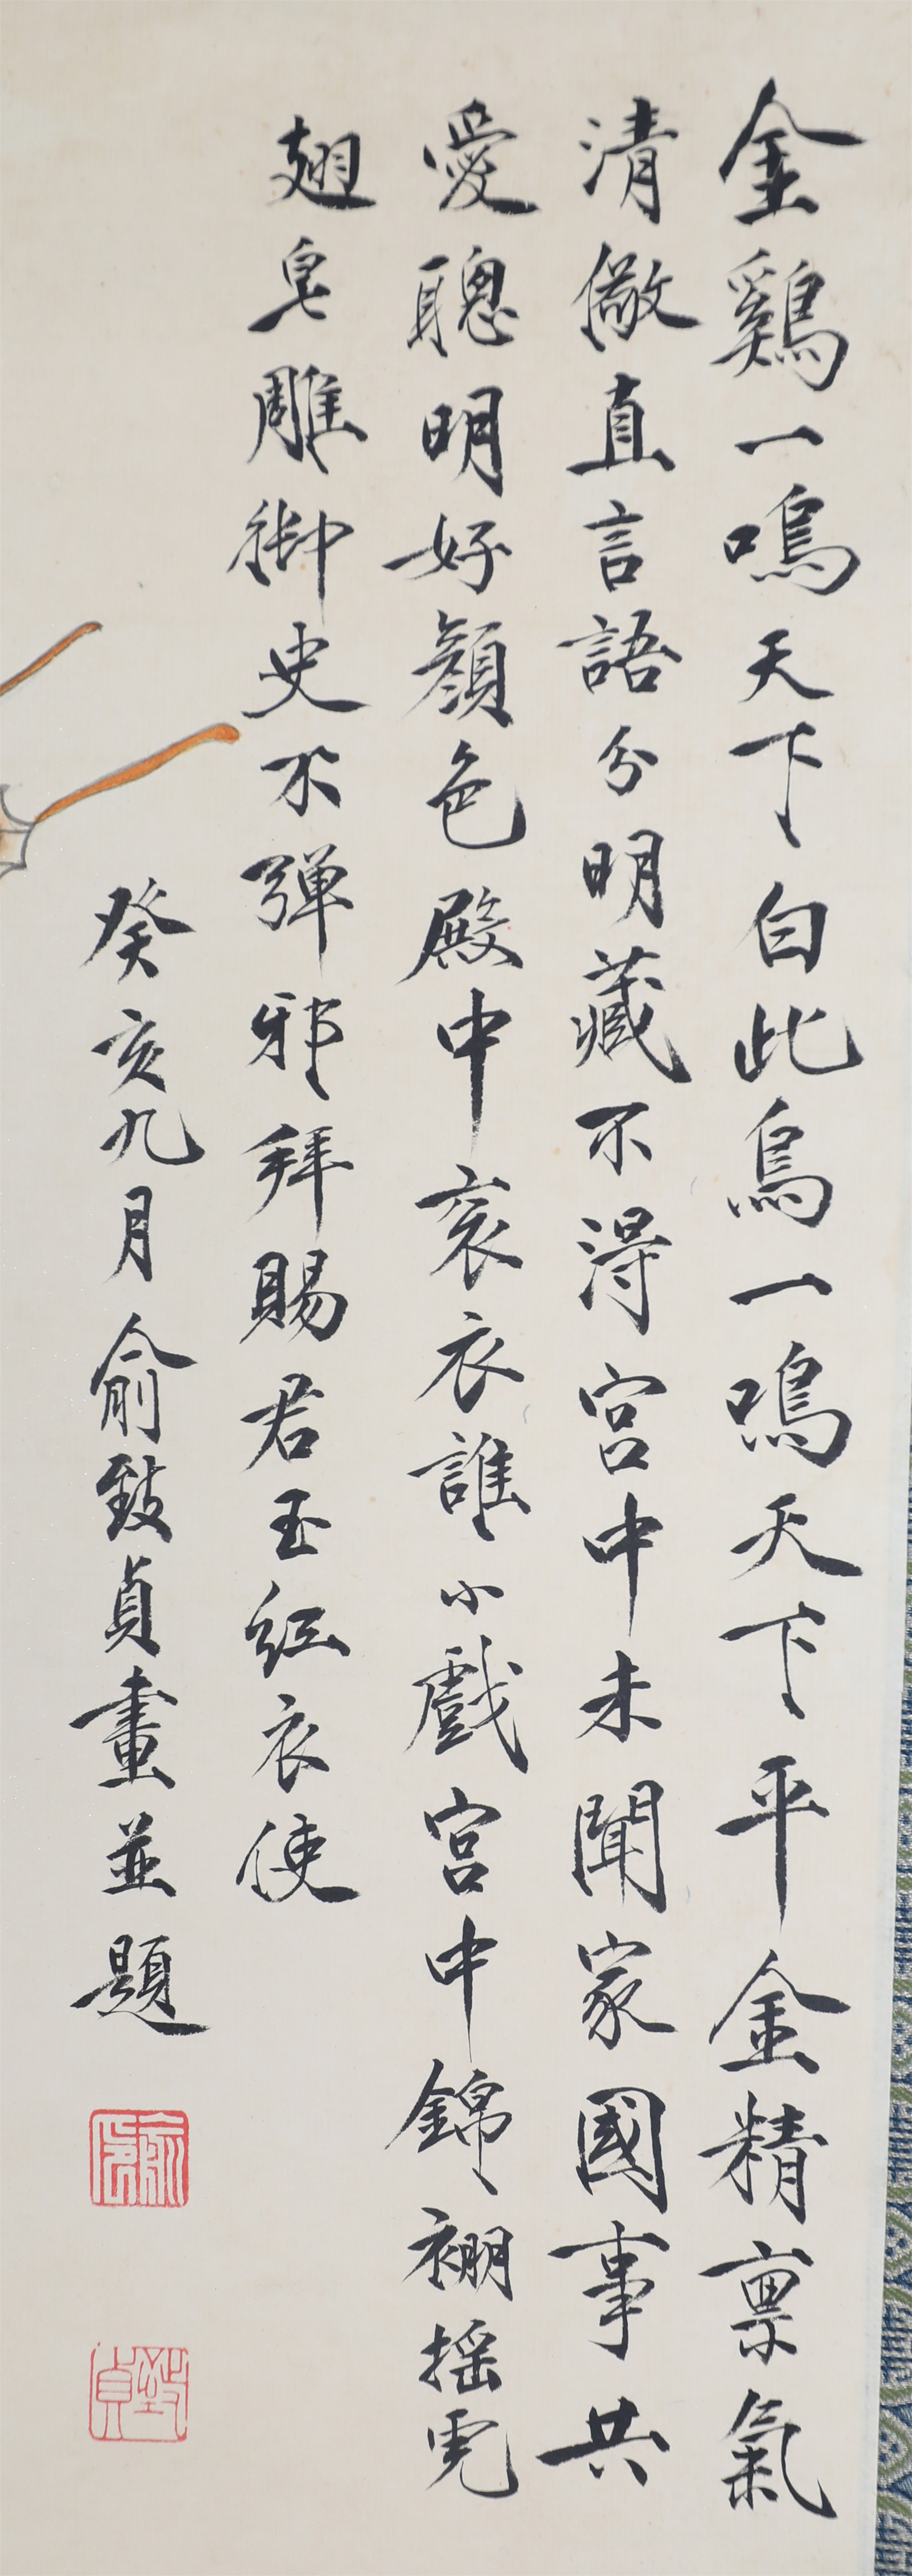 金鷄一鳴天下白此鳥一鳴天下平金精禀氣
清儆直言語分明藏不得宮中未聞家國事共
愛聰明好顏色殿中袞衣誰小戲宮中錦裯搖
翅皂雕御史不彈邪拜賜君王紅衣使
癸亥九月俞致貞畫並題
俞
致貞